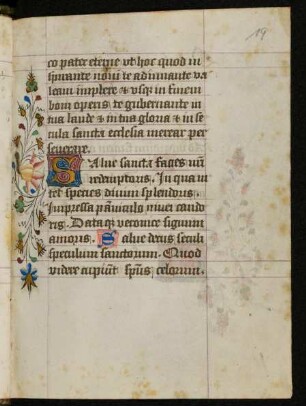 19
co pater etipie vt hoc quod in
spirante noui te adiuuante va
leam implere & vsqꝫ in finem
boni operis te gubernante in
tua laude & in tua gloria & in se
cula sancta ecclesia merear per
seuerare.
Salue sancta facies nr̄i
redemptoris. In qua ni
tet species diuini splendoris.
Impressa pāniculo niuei cando
ris. Dataqꝫ veronice signum
amoris. Salue decus seculi
speculum sanctorum. Quod
videre cupiūt spūs celorum.